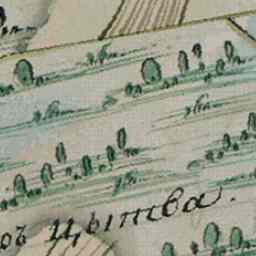 оъ Цытва.